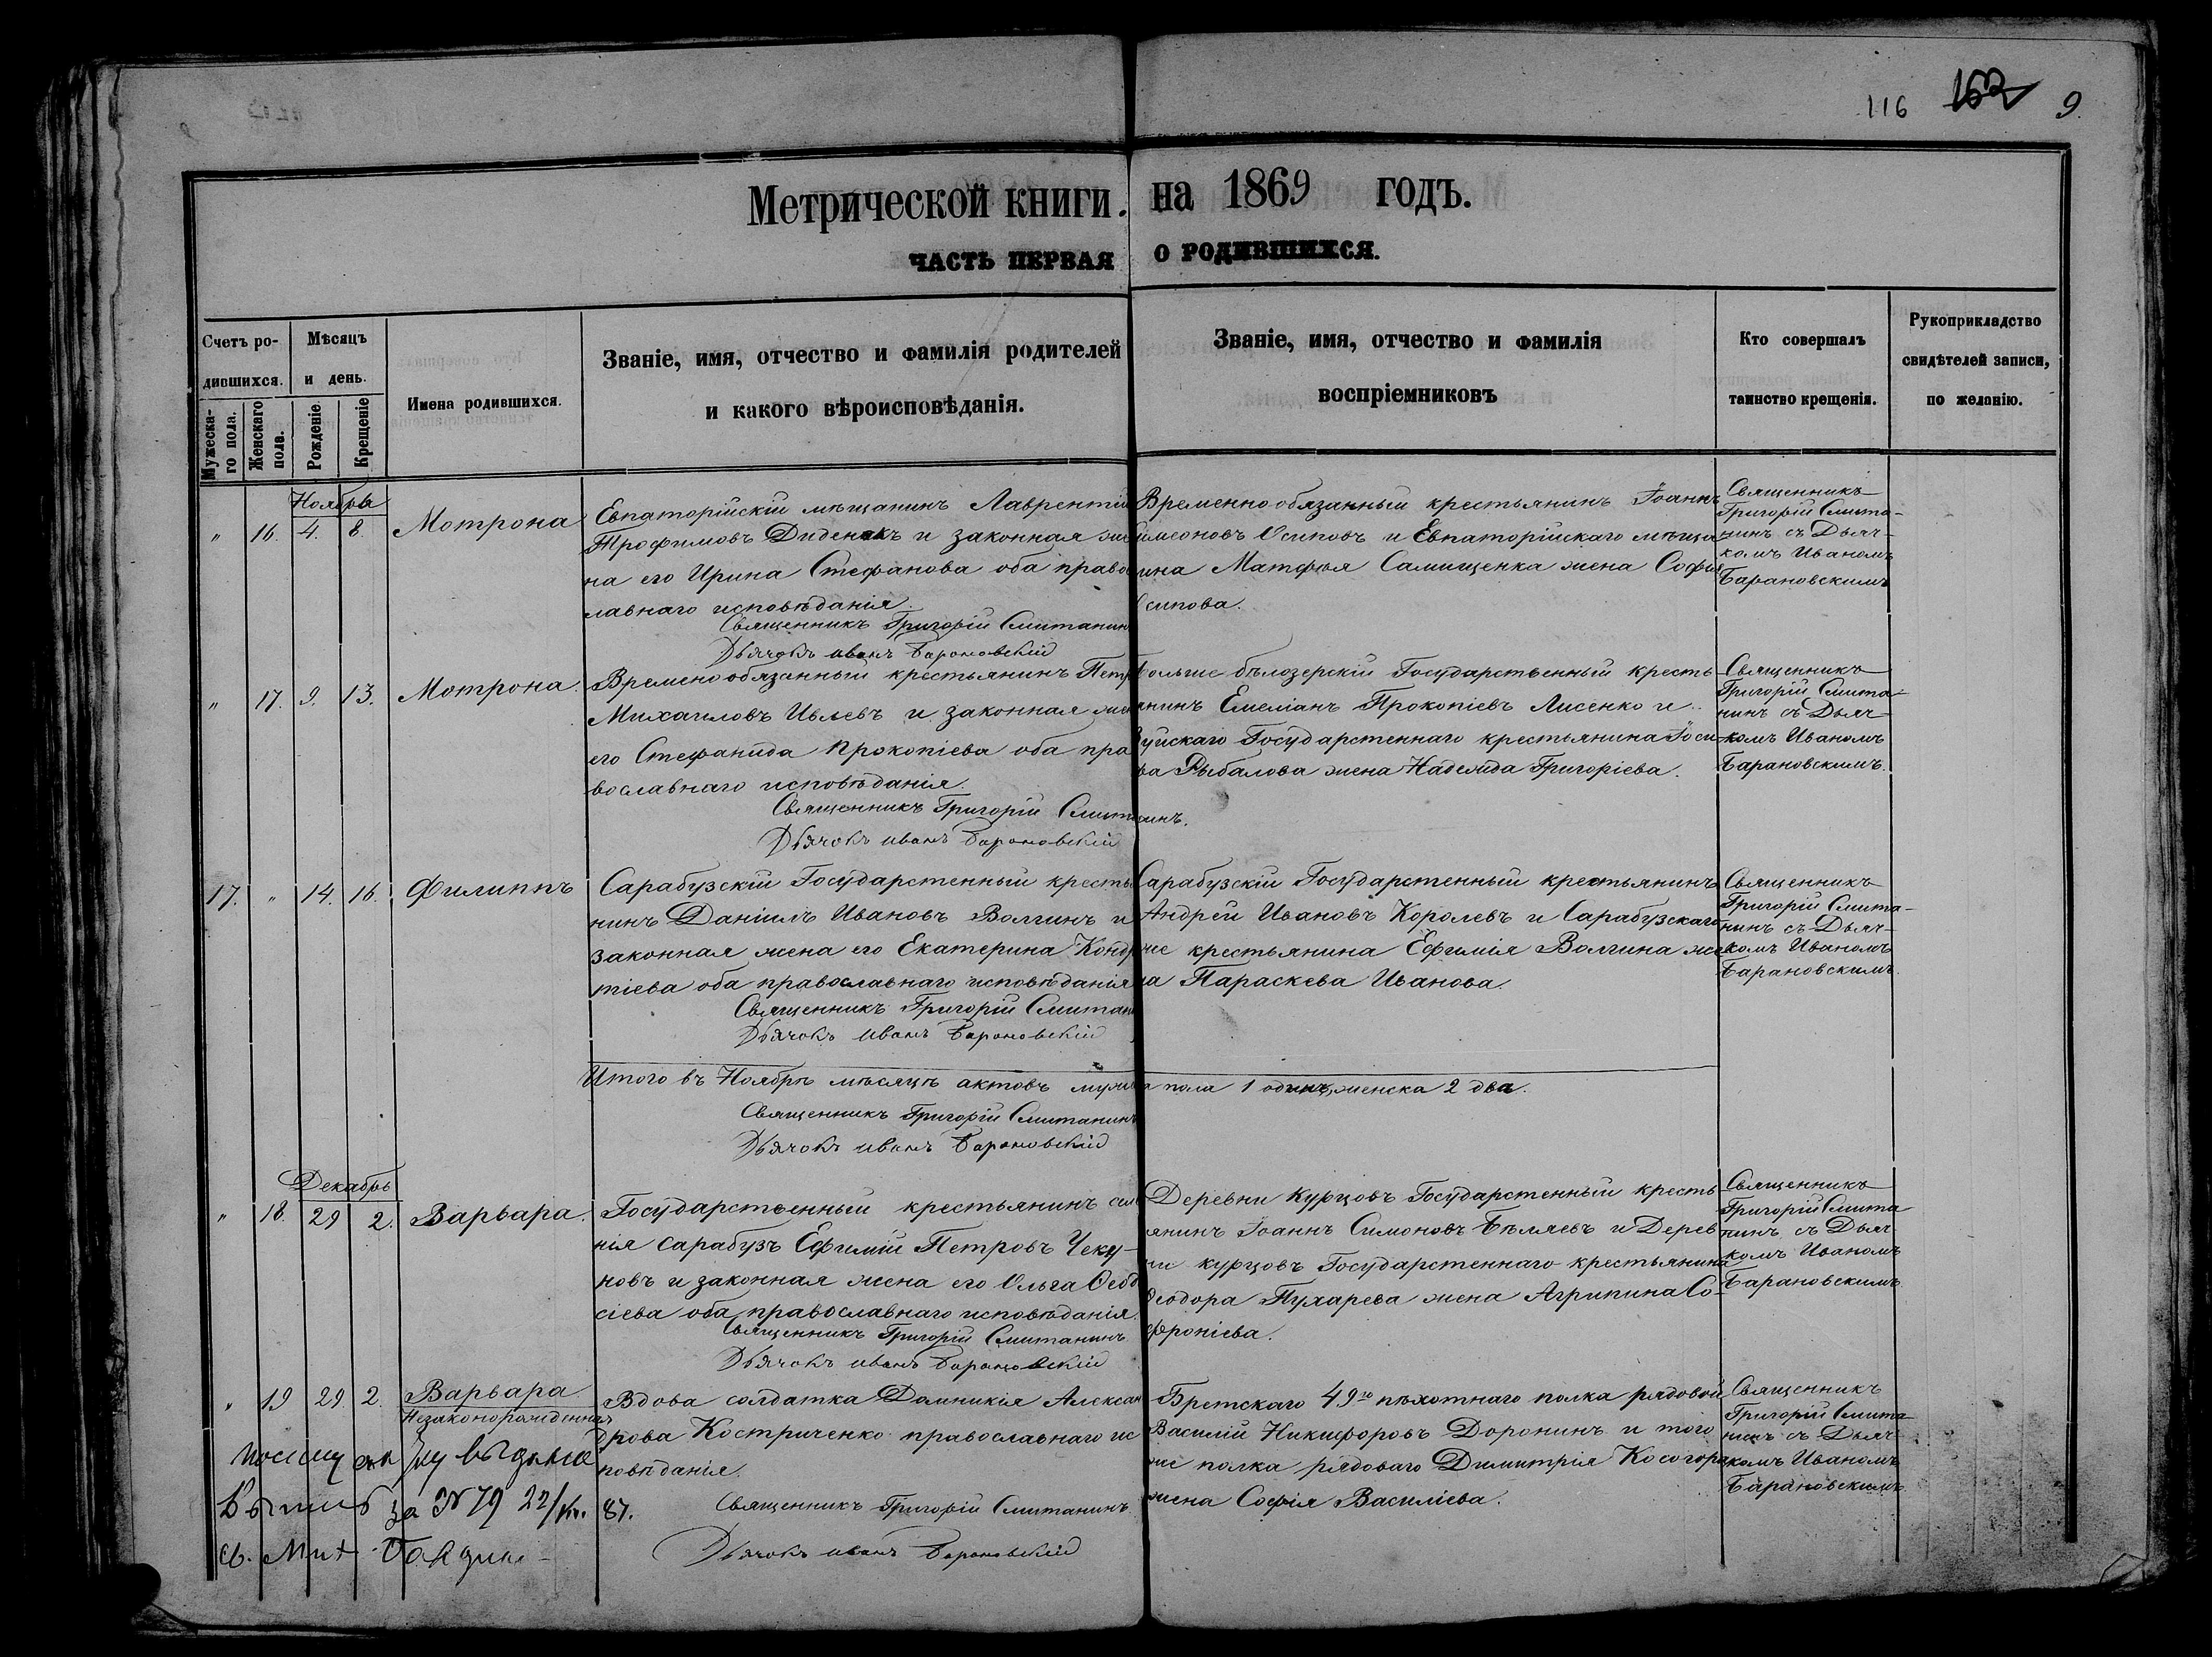 116 162 9.
Метрической книги. на 1869 годъ.
ЧАСТЬ ПЕРВАЯ О РОДИВШИХСЯ.
Счетъ ро-
дившихся.
Мужеска-
го пола.
Женскаго
пола.
Мѣсяцъ
и день.
Рожденіе.
Крещеніе
Имена родившихся.
Званіе, имя, отчество и фамилія родителей
и какого вѣроисповѣданія.
Званіе, имя, отчество и фамилія
воспріемниковъ
Кто совершалъ
таинство крещенія.
Рукоприкладство
свидѣтелей записи,
по желанію.
Ноябрь
" 16. 4. 8. Мотрона
Евпаторійскій мѣщанинъ Лаврентій
Трофимовъ Диденокъ и законная же
на его Ирина Стефанова оба право
лавнаго исповѣданія.
Священникъ Григорій Смитанинъ
Дьячокъ иванъ Барановскій
Временнообязанный крестьянинъ Іоаннъ
Симеоновъ Осиповъ и Евпаторійскаго мѣща
нина Матфея Самищенка жена Софія
Осипова.
Священникъ
Григорій Смита-
нинъ съ Дьяч-
комъ Иваномъ
Барановскимъ
" 17. 9. 13. Мотрона.
Временообязанный крестьянинъ Петръ
Михаиловъ Ивлевъ и законная жена
его Стефанида Прокопіева оба пра
вославнаго исповѣданія.
Священникъ Григорій Смитанинъ.
Дьячокъ иванъ Барановскій
Больше бѣлозерскій Государственный кресть
янинъ Емеліанъ Прокопіевъ Лисенко и
Зуйскаго Государстеннаго крестьянина Іоси
ва Рыбалова жена Надежда Григоріева.
Священникъ
Григорій Смита-
нинъ съ Дьяч-
комъ Иваномъ
Барановскимъ.
17. " 14. 16. Филиппъ
Сарабузскій Государстенный крестья
нинъ Даніилъ Ивановъ Волгинъ и
законная жена его Екатерина Кондр
тіева оба православнаго исповѣданія
Священникъ Григорій Смитан
Дьячокъ иванъ Барановскій
Сарабузскій Государстенный крестьянинъ
Андрей Ивановъ Королевъ и Сарабузскаго
же крестьянина Ефимія Волгина же
на Параскева Иванова.
Священникъ
Григорій Смита-
нинъ съ Дьяч-
комъ Иваномъ
Барановскимъ
Итого въ Ноябрѣ мѣсяцѣ актовъ мужска пола 1 одинъ, женска 2 два.
Священникъ Григорій Смитанинъ
Дьячокъ иванъ Барановскій
Декабрь
" 18. 29 2. Варвара.
Государственный крестьянинъ селе
нія Сарабузъ Ефимій Петровъ Чеку-
новъ и законная жена его Ольга Ѳеодо
сіева оба православнаго исповѣданія.
Священникъ Григорій Смитанинъ
Дьячокъ иванъ Барановскій
Деревни Курцовъ Государстенный кресть
янинъ Іоаннъ Симоновъ Бѣляевъ и Дерев
ни курцовъ Государстеннаго крестьянина
Ѳеодора Пухарева жена Агрипина Со-
фроніева.
Священникъ
Григорій Смита
нинъ съ Дьяч
комъ Иваномъ
Барановскимъ
" 19 29. 2. Варвара
Незаконорожденная
Вдова солдатка Домникія Алексан
дрова Костриченко православнаго ис
повѣданія.
Священникъ Григорій Смитанинъ
Дьячокъ иванъ Барановскій
Бретскаго 49го пѣхотнаго полка рядовой
Василій Никифоровъ Доронинъ и того
же полка рядоваго Димитрія Косогора
жена Софія Василіева.
Священникъ
Григорій Смита-
нинъ съ Дьяч-
комъ Иваномъ
Барановскимъ
за N 79 22/ 87.